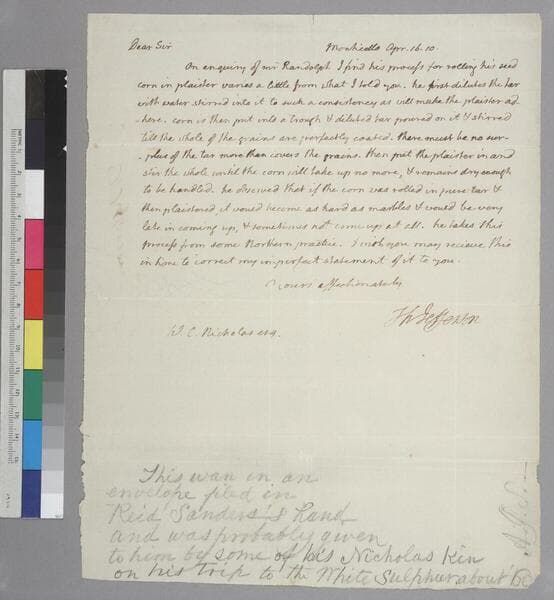 Dear Sir Monticello Apr. 16. 10.
On enquiry of mr Randolph I find his process for rolling his seed
corn in plaister varies a little from what I told you. he first dilutes the tar
with water stirred into it to such a consistency as will make the plaister ad-
-here. corn is then put into a trough & diluted tar poured on it & stirred
till the whole of the grains are perfectly coated. there must be no sur-
-plus of the tar more than covers the grains. then put the plaister in and
stir the whole until the corn will take up no more, & remains dry enough
to be handled. he observed that if the corn was rolled in pure tar &
then plaistered it would become as hard as marbles & would be very
late in coming up, & sometimes not come up at all. he takes this
process from some Northern practice. I wish you may recieve this
in time to correct my imperfect statement of it to you.
Yours affectionately
Th Jefferson
W. C. Nicholas esq.
This was in an
envelope filed in
Reid Sanders's hand
and was probably given
to him by some of his Nicholas kin
on his trip to the White Sulphur about